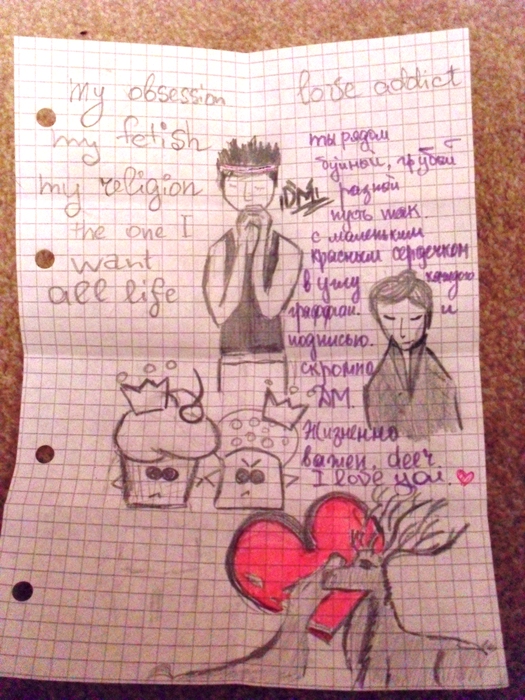 My obsession
my fetish
my religion
the one I
want
all life
love addict
ты рядом
буйный, грубый
разной
пусть так.
с маленьким
красным сердечком
в углу каждого
граффити. и
подписью.
скромно
DM.
Жизненно
важен, deer
I love you.
DM